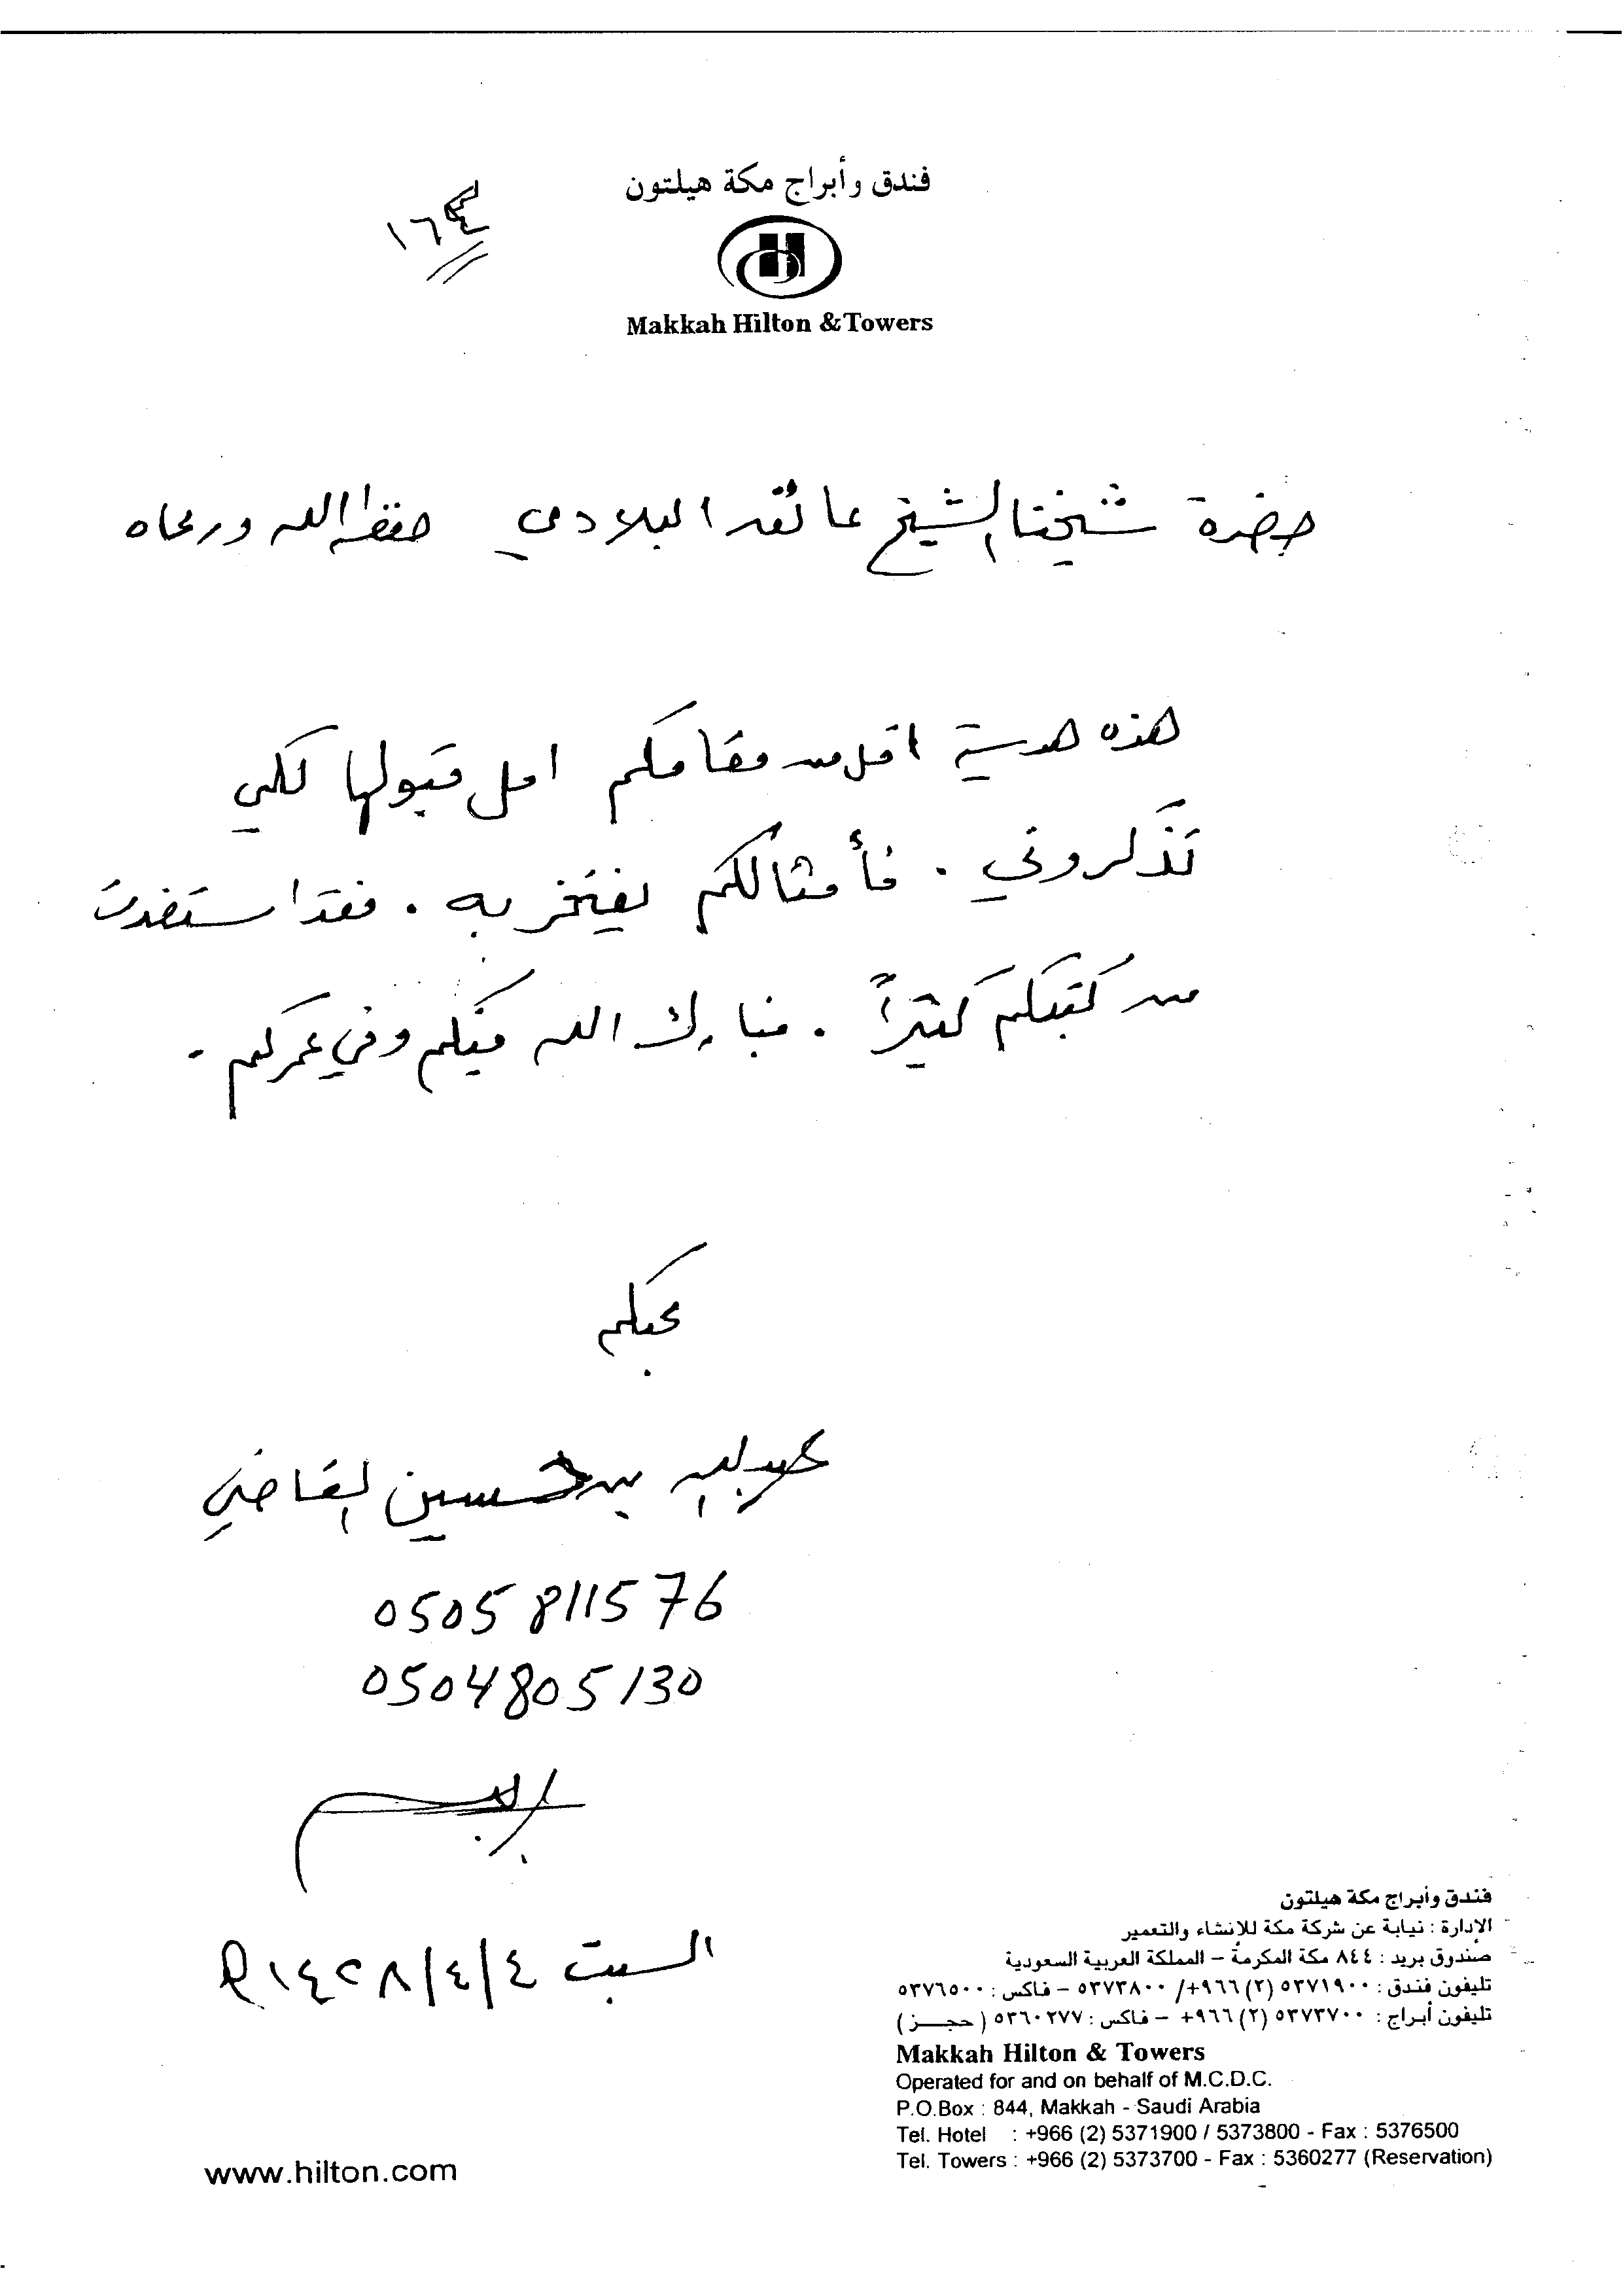 فندق وأبراج مكة هيلتون
Makkah Hilton & Towers
حضرة شيخنا الشيخ عاتق البلادي حفظه الله ورعاه
هذه هدية اقل من مقامكم امل قبولها لكي
تذكروني . فأمثالكم يفتخر به . فقد استفدت
من كتبكم كثيراً . فبارك الله فيكم وفي عمركم .
محبكم
عبدالله بن حسين القاضي
0505811576
0504805130
السبت ٤/٤/١٤٢٨ھ
فندق وأبراج مكة هيلتون
الإدارة : نيابة عن شركة مكة للانشاء والتعمير
صندوق بريد : ٨٤٤ مكة المكرمة – المملكة العربية السعودية
تليفون فندق : ٥٣٧١٩٠٠ (٢) ٩٦٦+/ ٥٣٧٣٨٠٠ – فاكس : ٥٣٧٦٥٠٠
تليفون أبراج : ٥٣٧٣٧٠٠ (٢) ٩٦٦+ – فاكس : ٥٣٦٠٢٧٧ ( حجـــز )
Makkah Hilton & Towers
Operated for and on behalf of M.C.D.C.
P.O.Box : 844, Makkah - Saudi Arabia
Tel. Hotel : +966 (2) 5371900 / 5373800 - Fax : 5376500
Tel. Towers : +966 (2) 5373700 - Fax : 5360277 (Reservation)
www.hilton.com